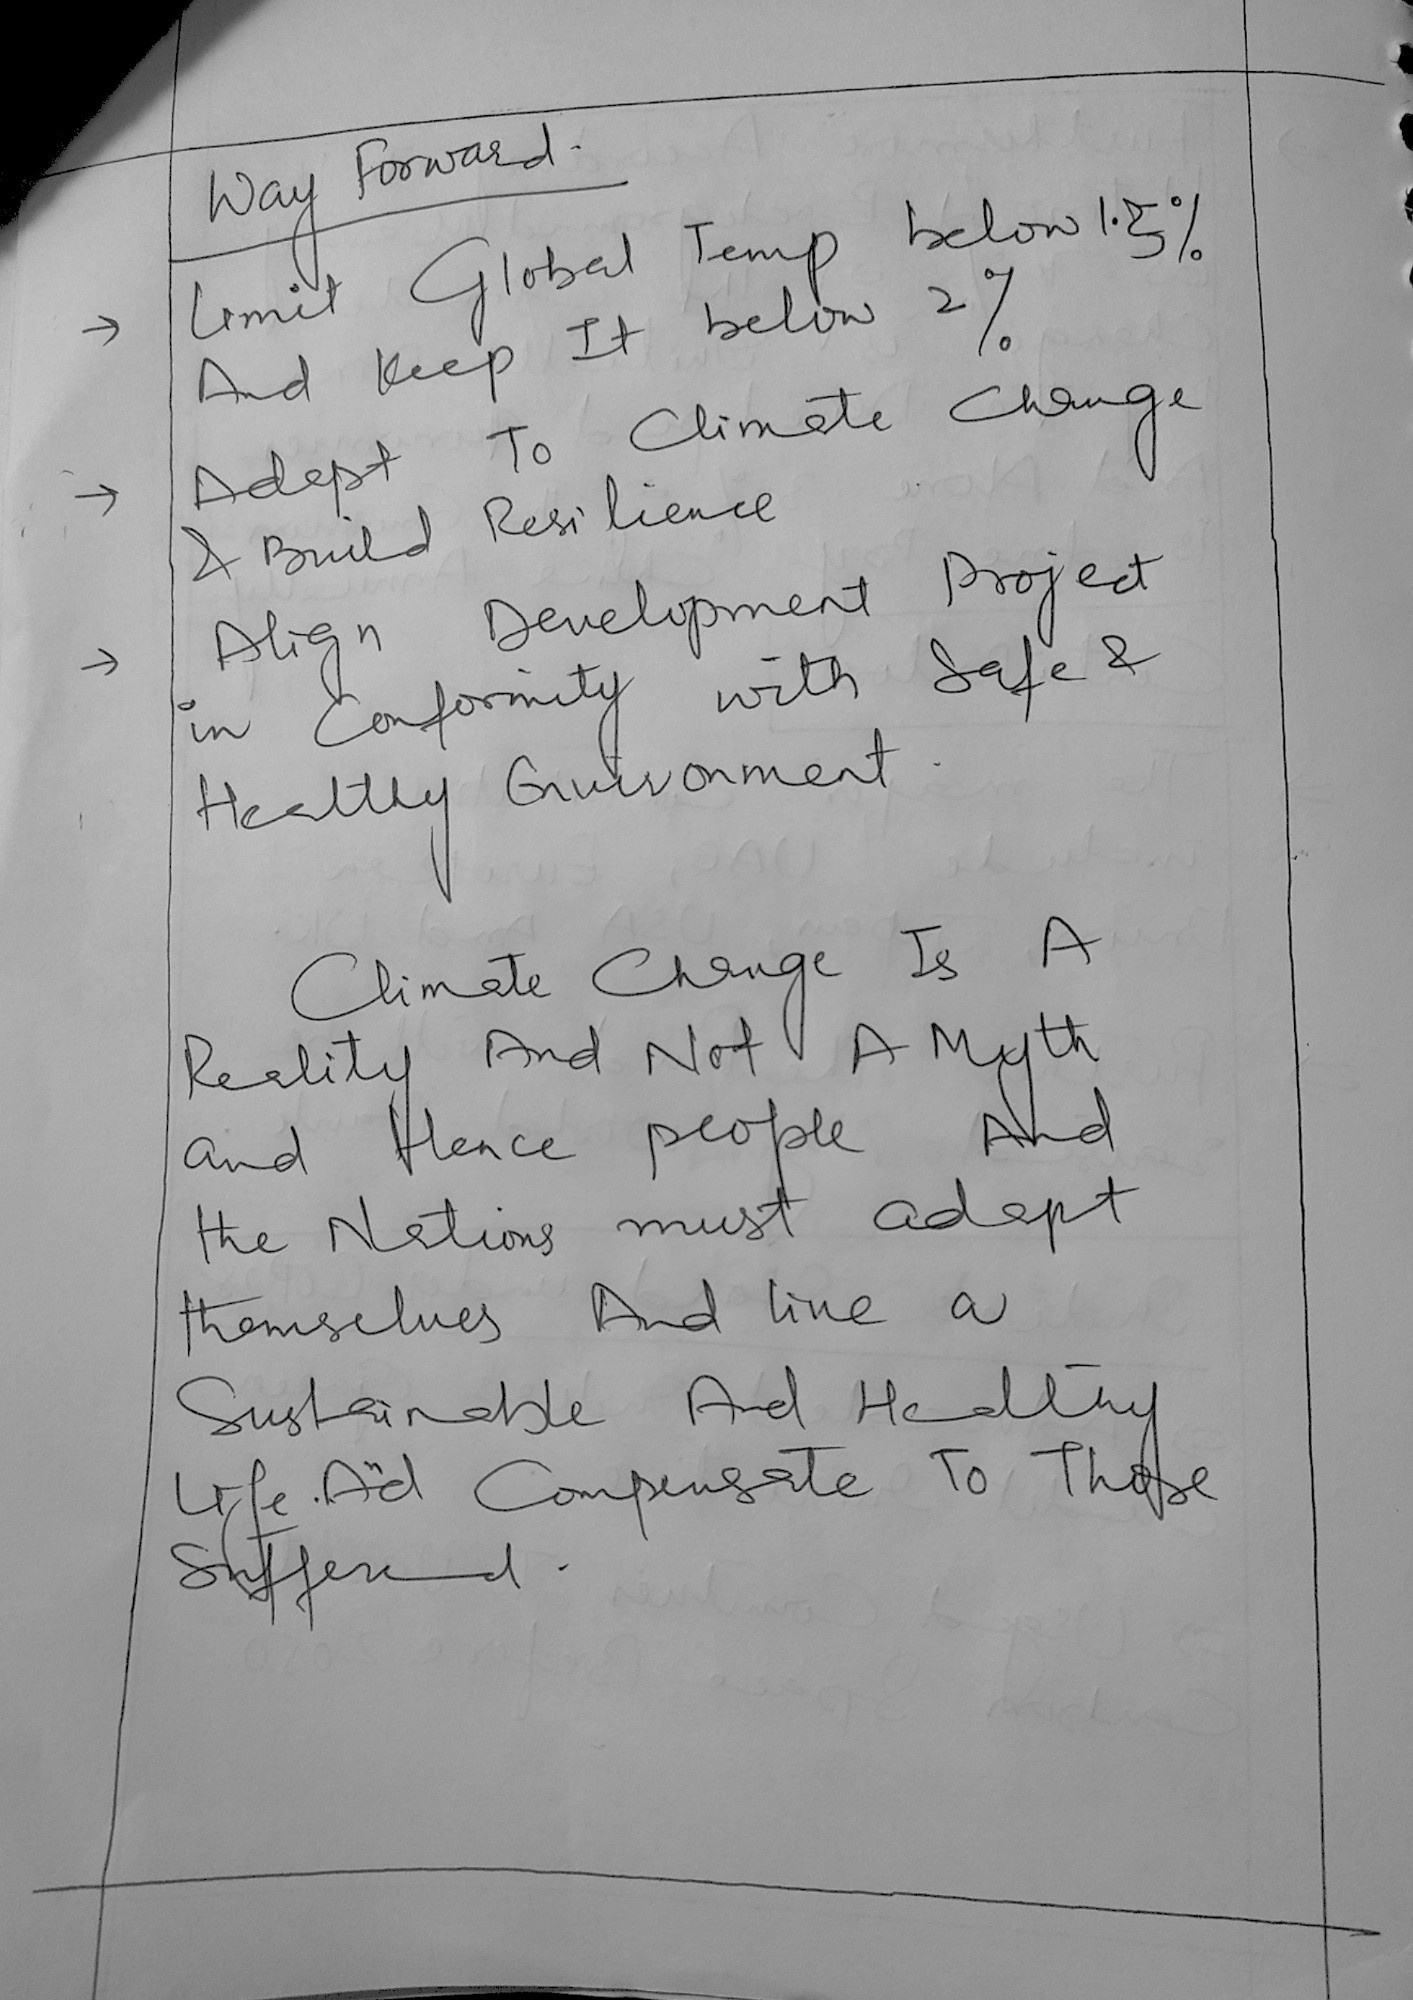 Way Forward.
→ Limit Global Temp below 1.5%
And Keep It below 2%
→ Adapt To Climate Change
& Build Resilience
→ Align Development Project
in Conformity with Safe &
Healthy Environment.
Climate Change Is A
Reality And Not A Myth
and Hence people And
the Nations must adapt
themselves And live a
Sustainable And Healthy
Life. And Compensate To Those
Suffered.